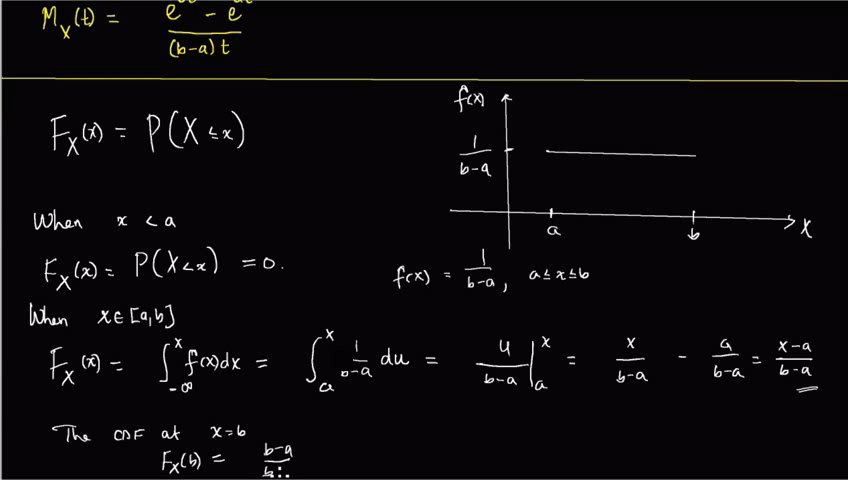 M_X(t) = (e - e) / (b-a)t
F_X(x) = P(X ≤ x)
f(x)
1/(b-a)
a
b
X
When x < a
F_X(x) = P(X < x) = 0.
f(x) = 1/(b-a), a ≤ x ≤ b
When x ∈ [a,b]
F_X(x) = ∫_{-∞}^{x} f(x)dx = ∫_a^x 1/(b-a) du = u/(b-a) |_a^x = x/(b-a) - a/(b-a) = (x-a)/(b-a)
The CDF at x=b
F_X(b) = b-a